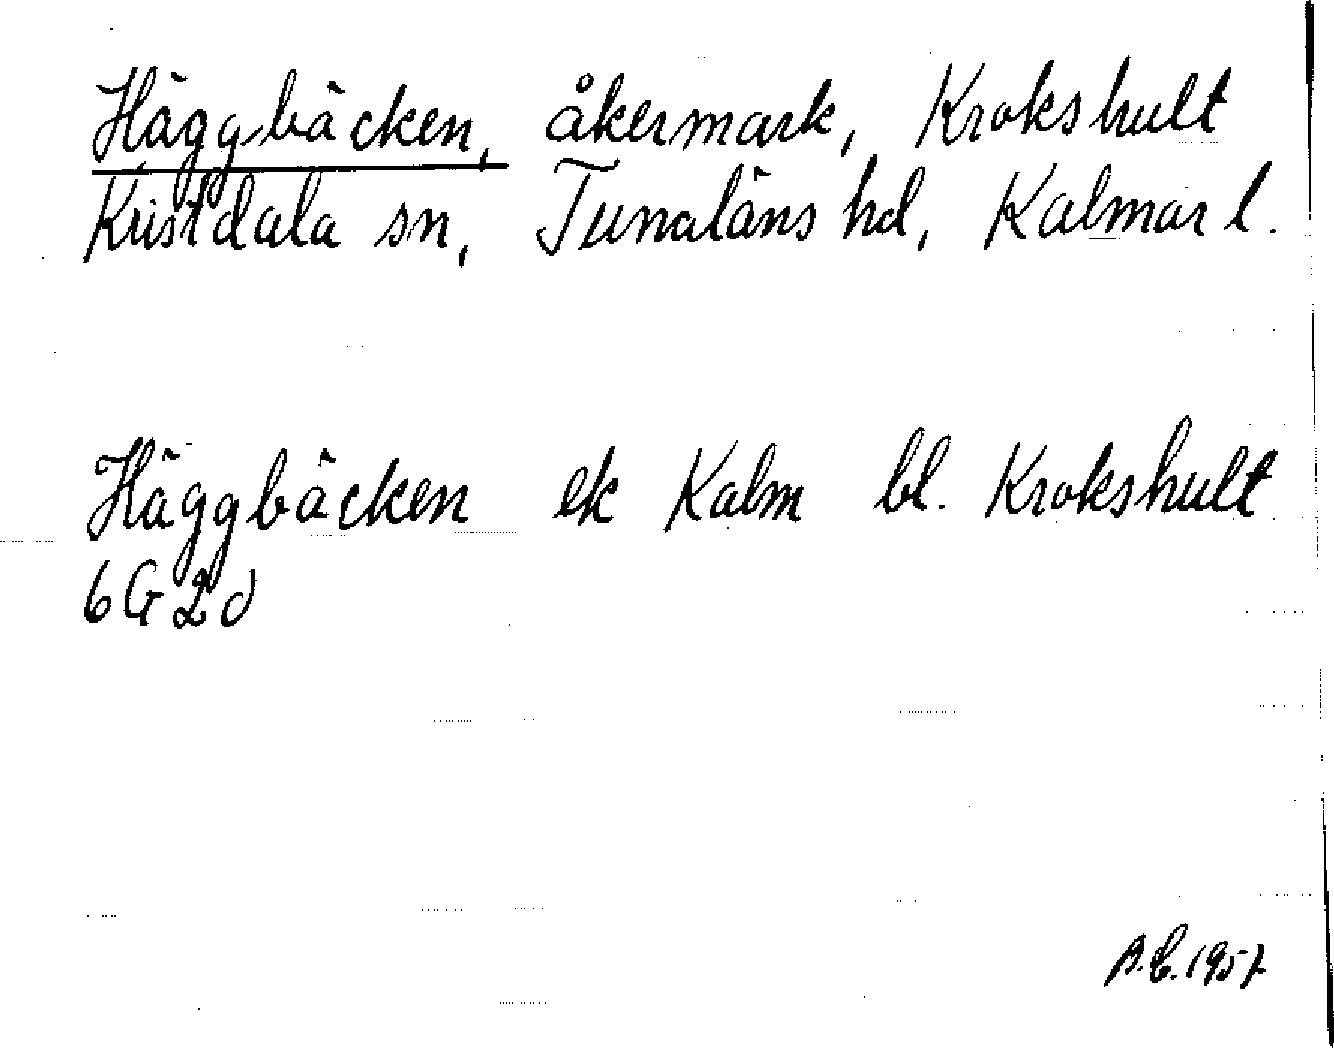 Häggbäcken, åkermark, Krokshult
Kristdala sn, Tunaläns hd, Kalmar l.
Häggbäcken ek Kalm bl. Krokshult
6G2d
A.C. 1957